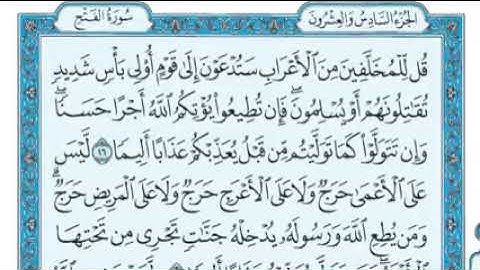 الجزء السادس والعشرون
سورة الفتح
قُل لِّلْمُخَلَّفِينَ مِنَ ٱلْأَعْرَابِ سَتُدْعَوْنَ إِلَىٰ قَوْمٍ أُو۟لِى بَأْسٍ شَدِيدٍ
تُقَـٰتِلُونَهُمْ أَوْ يُسْلِمُونَ ۖ فَإِن تُطِيعُوا۟ يُؤْتِكُمُ ٱللَّهُ أَجْرًا حَسَنًا ۖ
وَإِن تَتَوَلَّوْا۟ كَمَا تَوَلَّيْتُم مِّن قَبْلُ يُعَذِّبْكُمْ عَذَابًا أَلِيمًا ١٦ لَّيْسَ
عَلَى ٱلْأَعْمَىٰ حَرَجٌ وَلَا عَلَى ٱلْأَعْرَجِ حَرَجٌ وَلَا عَلَى ٱلْمَرِيضِ حَرَجٌ ۗ
وَمَن يُطِعِ ٱللَّهَ وَرَسُولَهُۥ يُدْخِلْهُ جَنَّـٰتٍ تَجْرِى مِن تَحْتِهَا